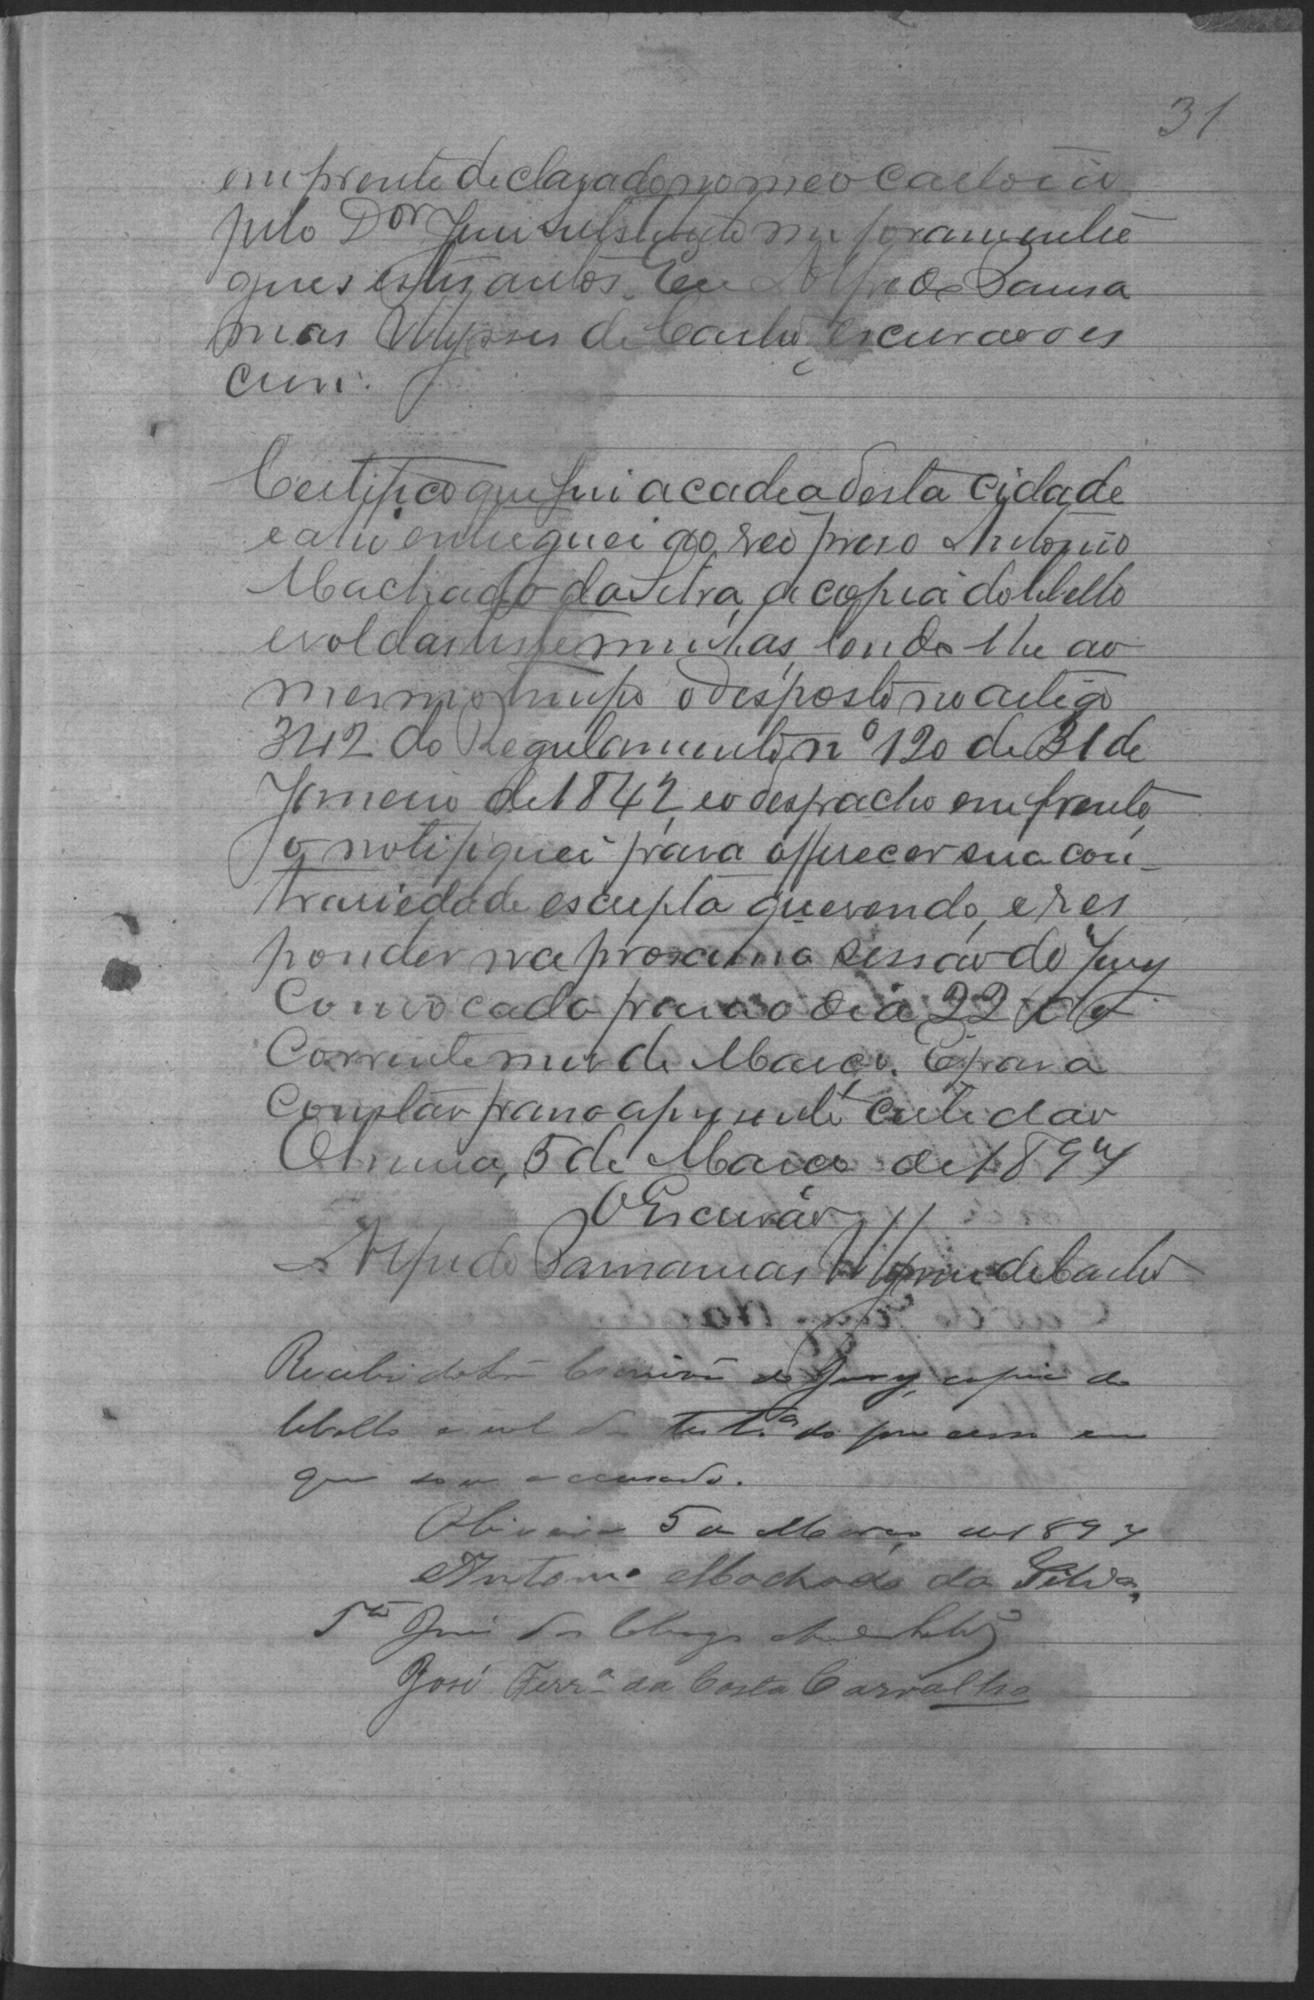 31
em frente declarado no meo cartorio
pelo Dor Juiz Substituto me foram entre
gues estes autos. Eu Alfredo Parna
mas Ulysses de Castro, escrivao o es
crivi.
Certifico que fui a cadea desta cidade
e ahi entreguei ao reo preso Antonio
Machado da Silva, a copia do libello
e rol das testemunhas, lendo lhe ao
mesmo tempo o desposto no artigo
342 do Regulamento nº 120 de 31 de
Janeiro de 1842, e o despacho em frente,
o notifiquei para offerecer sua con-
trariedade escripta querendo, e res
ponder na proxima sessão do Jury
Convocada para o dia 22 do
Corrente mes de Março. E para
Constar passo a presente certidão
5 de Março de 1897
O Escrivão
Alfredo Parnamas Ulysses de Castro
Recebi do Snr Escrivão do Jury, copia do
libello e rol das testas do processo em
que sou accusado.
5 de Março de 1897
Antonio Machado da Silva,
José das Chagas
José Ferra da Costa Carvalho